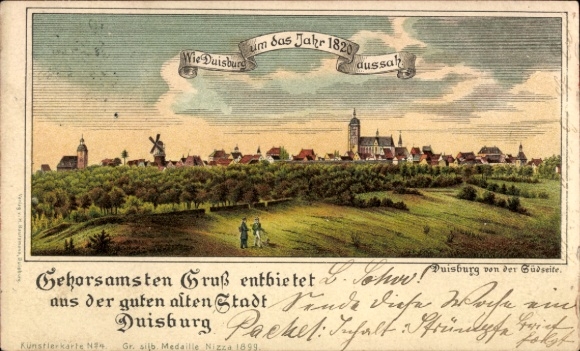 Wie Duisburg um das Jahr 1820 aussah.
Duisburg von der Südseite.
Gehorsamsten Gruß entbietet
aus der guten alten Stadt
Duisburg
Sende diese Woche ein
Packet: Inhalt: Strümpfe Brief
folgt
Künstlerkarte No 4. Gr. silb. Medaille Nizza 1899.